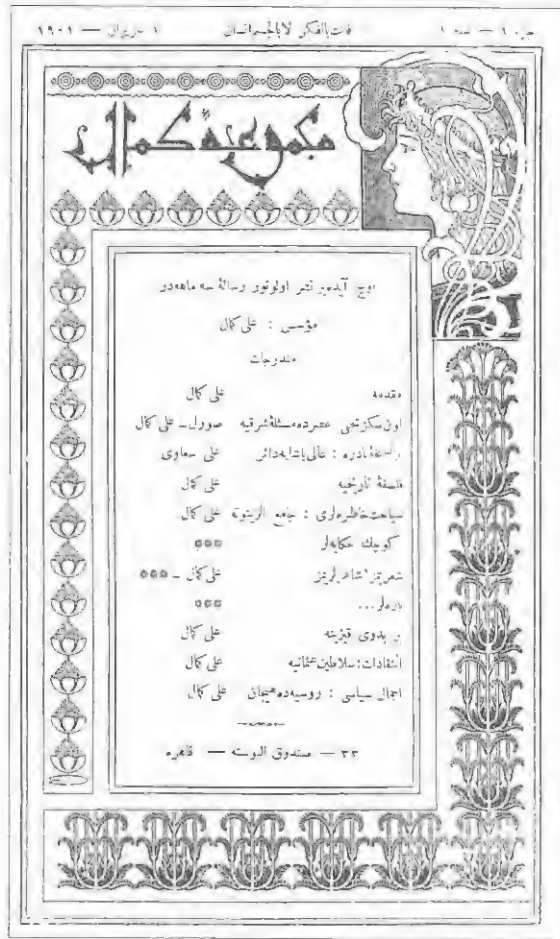 جزء ١ — سنه ١
فات بالفكر لا بالجسم انسان
١ حزيران — ١٩٠١
مجموعهٔ كمال
اوچ آيده بر نشر اولونور رسالهٔ سه ماهه‌در
مؤسس : على كمال
مندرجات
مقدمه على كمال
اون سكزنجى عصرده مسئلهٔ شرقيه صورل ـ على كمال
نسخهٔ نادره : عالى پاشايه دائر على سعاوى
فلسفهٔ تاريخيه على كمال
سياحت خاطره‌لرى : جامع الزيتونه على كمال
كوچك حكايه‌لر ***
شعريمز، شاعرلريمز على كمال ـ ***
پاره‌لر... ***
بر بدوى قيزينه على كمال
انتقادات : سلاطين عثمانيه على كمال
اجمال سياسى : روسيه‌ده هيجان على كمال
٣٣ — صندوق البوسته — قاهره